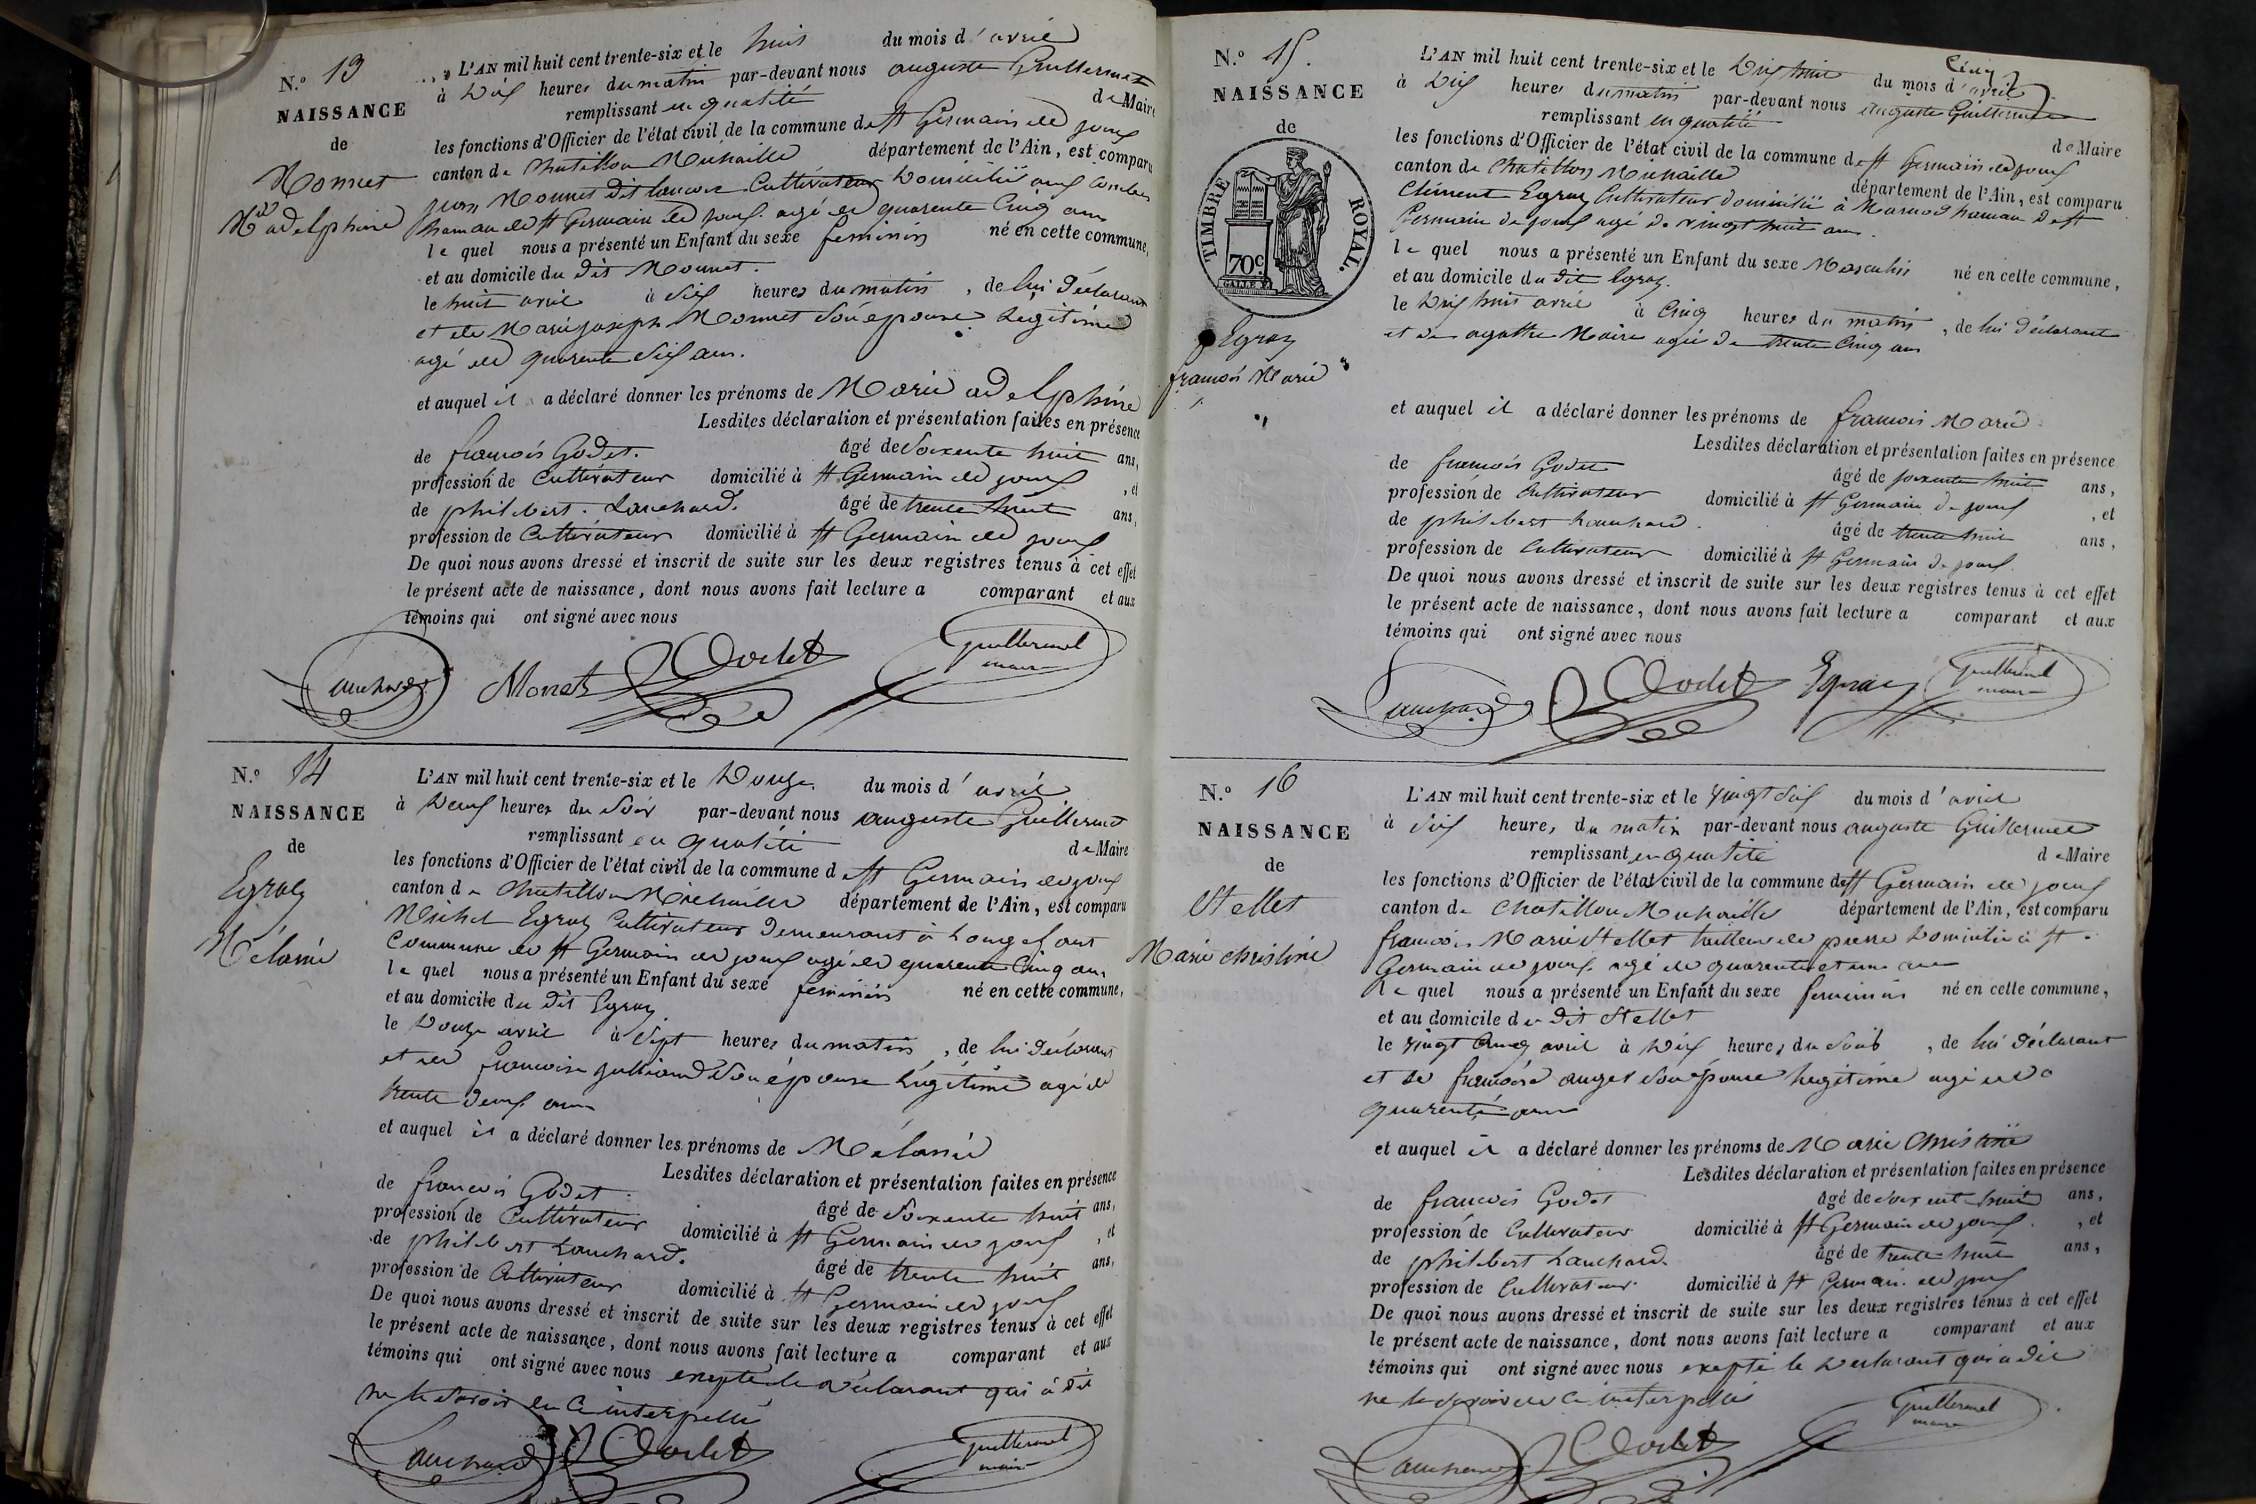 N.° 13
NAISSANCE
de
Monnet
Mie adelphine
L'AN mil huit cent trente-six et le huit du mois d'avril
à dix heures du matin par-devant nous auguste Guillermet
remplissant en qualité de Maire
les fonctions d'Officier de l'état civil de la commune de St Germain de joux
canton de Chatillon Michaille département de l'Ain, est comparu
Monnet dit Cultivateur domicilié aux
hameau de St Germain de joux agé de quarente Cinq ans
le quel nous a présenté un Enfant du sexe feminin né en cette commune,
et au domicile du dit Monnet.
le huit avril à Six heures du matin, de lui déclarant
et de Marie joseph Monnet Son épouse legitime
agé de quarente Six ans.
et auquel il a déclaré donner les prénoms de Marie adelphine
Lesdites déclaration et présentation faites en présence
de francois Godet. âgé de Soixente huit ans,
profession de Cultivateur domicilié à St Germain de joux, et
de philibert Lanchard. âgé de trente huit ans,
profession de Cultivateur domicilié à St Germain de joux
De quoi nous avons dressé et inscrit de suite sur les deux registres tenus à cet effet
le présent acte de naissance, dont nous avons fait lecture a comparant et aux
témoins qui ont signé avec nous
Lanchard Monet Godet Guillermet
maire
N.° 14
NAISSANCE
de
Egraz
Mélanie
L'AN mil huit cent trente-six et le Douze du mois d'avril
à Deux heures du Soir par-devant nous auguste Guillermet
remplissant en qualité de Maire
les fonctions d'Officier de l'état civil de la commune de St Germain de joux
canton de Chatillon Michaille département de l'Ain, est comparu
Michel Egraz Cultivateur Demeurant à Longefant
Commune de St Germain de joux agé de quarente Cinq ans
le quel nous a présenté un Enfant du sexe feminin né en cette commune,
et au domicile du dit Egraz
le Douze avril à Sept heures du matin, de lui déclarant
et de francoise julliand Son épouse Légitime agé de
trente deux ans
et auquel il a déclaré donner les prénoms de Mélanie
Lesdites déclaration et présentation faites en présence
de francois Godet. âgé de Soixente huit ans,
profession de Cultivateur domicilié à St Germain de joux, et
de philibert Lanchard. âgé de trente huit ans,
profession de Cultivateur domicilié à St Germain de joux
De quoi nous avons dressé et inscrit de suite sur les deux registres tenus à cet effet
le présent acte de naissance, dont nous avons fait lecture a comparant et aux
témoins qui ont signé avec nous excepté le Déclarant qui à dit
ne le Savoir de Ce interpellé
Lanchard Godet Guillermet
maire
N.° 15.
NAISSANCE
de
TIMBRE ROYAL.
70c
Egraz
francois Marie
L'AN mil huit cent trente-six et le Dix huit du mois d'avril
à Dix heures du matin par-devant nous auguste Guillermet
remplissant en qualité de Maire
les fonctions d'Officier de l'état civil de la commune de St Germain de joux
canton de Chatillon Michaille département de l'Ain, est comparu
Clément Egraz Cultivateur domicilié à Marnod hameau de St
Germain de joux agé de vingt huit ans.
le quel nous a présenté un Enfant du sexe Masculin né en cette commune,
et au domicile du dit Egraz.
le Dix huit avril à Cinq heures du matin, de lui déclarant
et de agathe Maire agée de trente Cinq ans
et auquel il a déclaré donner les prénoms de francois Marie
Lesdites déclaration et présentation faites en présence
de francois Godet âgé de soixente huit ans,
profession de Cultivateur domicilié à St Germain de joux, et
de philibert Lanchard. âgé de trente huit ans,
profession de Cultivateur domicilié à St Germain de joux
De quoi nous avons dressé et inscrit de suite sur les deux registres tenus à cet effet
le présent acte de naissance, dont nous avons fait lecture a comparant et aux
témoins qui ont signé avec nous
Lanchard Godet Egraz Guillermet
maire
N.° 16
NAISSANCE
de
Stellet
Marie christine
L'AN mil huit cent trente-six et le vingt Six du mois d'avril
à Six heures du matin par-devant nous auguste Guillermet
remplissant en qualité de Maire
les fonctions d'Officier de l'état civil de la commune de St Germain de joux
canton de Chatillon Michaille département de l'Ain, est comparu
francois Marie Stellet tailleur de pierre Domicilié à St.
Germain de joux agé de quarente et un ans
le quel nous a présenté un Enfant du sexe feminin né en cette commune,
et au domicile du dit Stellet
le vingt Cinq avril à Dix heures du Soir, de lui déclarant
et de francoise auger Son épouse legitime agé de
quarente ans
et auquel il a déclaré donner les prénoms de Marie Christine
Lesdites déclaration et présentation faites en présence
de francois Godet âgé de Soixente huit ans,
profession de Cultivateur domicilié à St Germain de joux, et
de philibert Lanchard. âgé de trente huit ans,
profession de Cultivateur domicilié à St Germain de joux
De quoi nous avons dressé et inscrit de suite sur les deux registres tenus à cet effet
le présent acte de naissance, dont nous avons fait lecture a comparant et aux
témoins qui ont signé avec nous excepté le Declarant qui a dit
ne le Savoir de Ce interpellé
Lanchard Godet Guillermet
maire